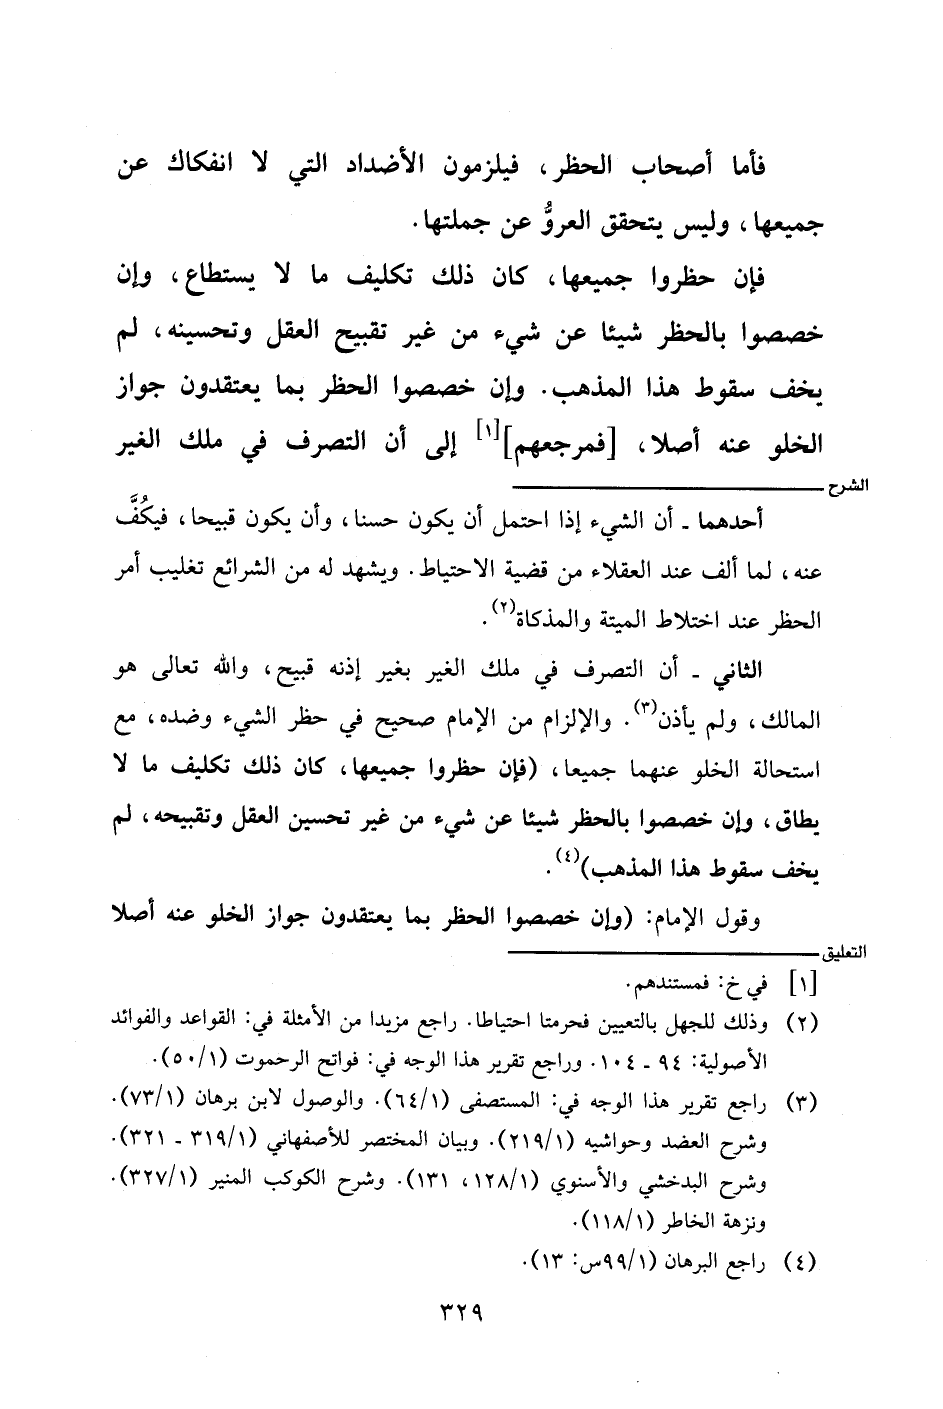 فأما أصحاب الحظر، فيلزمون الأضداد التي لا انفكاك عن
جميعها، وليس يتحقق العروُّ عن جملتها.
فإن حظروا جميعها، كان ذلك تكليف ما لا يستطاع، وإن
خصصوا بالحظر شيئا عن شيء من غير تقبيح العقل وتحسينه، لم
يخف سقوط هذا المذهب. وإن خصصوا الحظر بما يعتقدون جواز
الخلو عنه أصلا، [فمرجعهم][١] إلى أن التصرف في ملك الغير
الشرح
أحدهما - أن الشيء إذا احتمل أن يكون حسنا، وأن يكون قبيحا، فيكُفَّ
عنه، لما ألف عند العقلاء من قضية الاحتياط. ويشهد له من الشرائع تغليب أمر
الحظر عند اختلاط الميتة والمذكاة(٢).
الثاني - أن التصرف في ملك الغير بغير إذنه قبيح، والله تعالى هو
المالك، ولم يأذن(٣). والإلزام من الإمام صحيح في حظر الشيء وضده، مع
استحالة الخلو عنهما جميعا، (فإن حظروا جميعها، كان ذلك تكليف ما لا
يطاق، وإن خصصوا بالحظر شيئا عن شيء من غير تحسين العقل وتقبيحه، لم
يخف سقوط هذا المذهب)(٤).
وقول الإمام: (وإن خصصوا الحظر بما يعتقدون جواز الخلو عنه أصلا
التعليق
[١] في خ: فمستندهم.
(٢) وذلك للجهل بالتعيين فحرمتا احتياطا. راجع مزيدا من الأمثلة في: القواعد والفوائد
الأصولية: ٩٤ - ١٠٤. وراجع تقرير هذا الوجه في: فواتح الرحموت (٥٠/١).
(٣) راجع تقرير هذا الوجه في: المستصفى (٦٤/١). والوصول لابن برهان (٧٣/١).
وشرح العضد وحواشيه (٢١٩/١). وبيان المختصر للأصفهاني (٣١٩/١ - ٣٢١).
وشرح البدخشي والأسنوي (١٢٨/١، ١٣١). وشرح الكوكب المنير (٣٢٧/١).
ونزهة الخاطر (١١٨/١).
(٤) راجع البرهان (٩٩/١س: ١٣).
٣٢٩